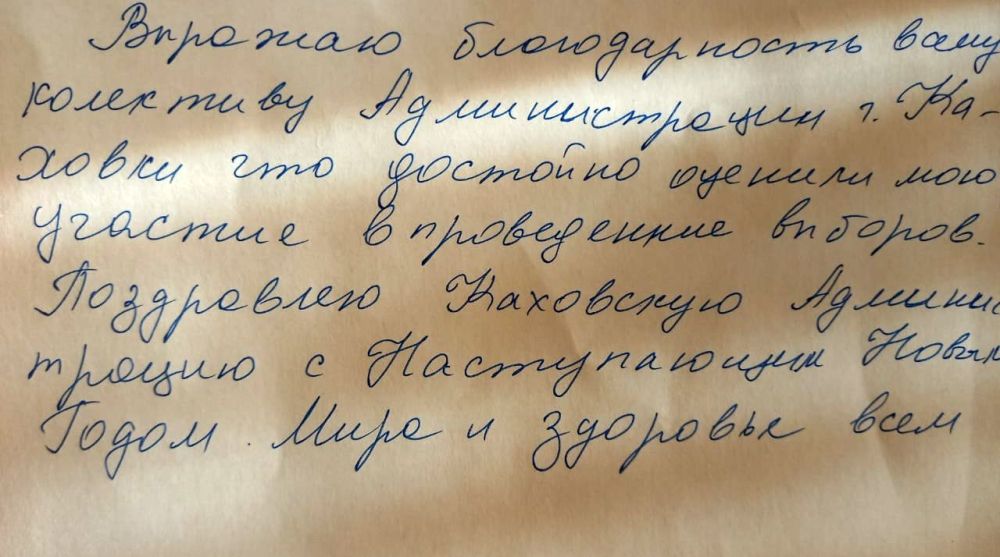 Выражаю благодарность всему
колективу Администрации г. Ка-
ховки что достойно оценили мою
участие в проведенние выборов.
Поздровлею Каховскую Админис
трацию с Наступающим Новым
Годом. Мира и здоровье всем